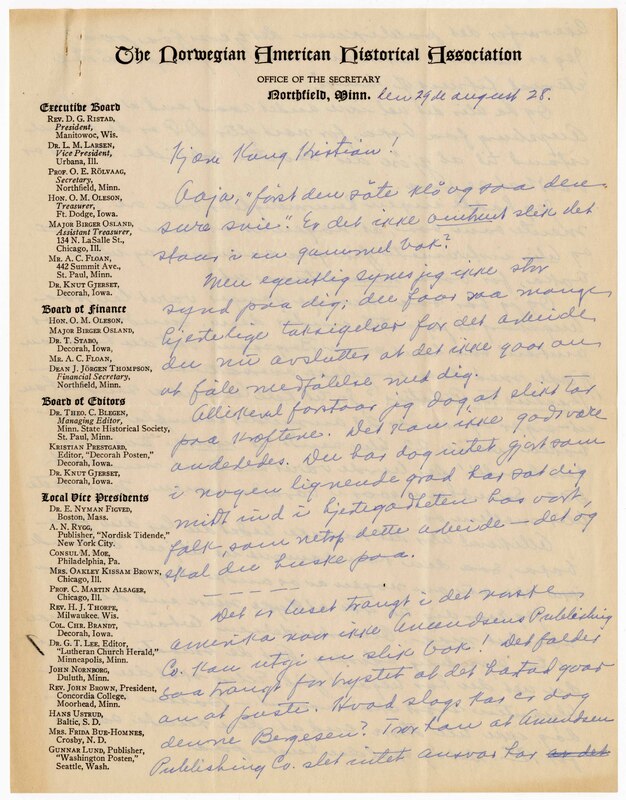 The Norwegian American Historical Association
OFFICE OF THE SECRETARY
Northfield, Minn. den 29de august 28.
Executive Board
REV. D. G. RISTAD,
President,
Manitowoc, Wis.
DR. L. M. LARSEN,
Vice President,
Urbana, Ill.
PROF. O. E. RÖLVAAG,
Secretary,
Northfield, Minn.
HON. O. M. OLESON,
Treasurer,
Ft. Dodge, Iowa.
MAJOR BIRGER OSLAND,
Assistant Treasurer,
134 N. LaSalle St.,
Chicago, Ill.
MR. A. C. FLOAN,
442 Summit Ave.,
St. Paul, Minn.
DR. KNUT GJERSET,
Decorah, Iowa.
Board of Finance
HON. O. M. OLESON,
MAJOR BIRGER OSLAND,
DR. T. STABO,
Decorah, Iowa,
MR. A. C. FLOAN,
DEAN J. JÖRGEN THOMPSON,
Financial Secretary,
Northfield, Minn.
Board of Editors
DR. THEO. C. BLEGEN,
Managing Editor,
Minn. State Historical Society,
St. Paul, Minn.
KRISTIAN PRESTGARD,
Editor, "Decorah Posten,"
Decorah, Iowa.
DR. KNUT GJERSET,
Decorah, Iowa.
Local Vice Presidents
DR. E. NYMAN FIGVED,
Boston, Mass.
A. N. RYGG,
Publisher, "Nordisk Tidende,"
New York City.
CONSUL M. MOE,
Philadelphia, Pa.
MRS. OAKLEY KISSAM BROWN,
Chicago, Ill.
PROF. C. MARTIN ALSAGER,
Chicago, Ill.
REV. H. J. THORPE,
Milwaukee, Wis.
COL. CHR. BRANDT,
Decorah, Iowa.
DR. G. T. LEE, Editor,
"Lutheran Church Herald,"
Minneapolis, Minn.
JOHN NORBORG,
Duluth, Minn.
REV. JOHN BROWN, President,
Concordia College,
Moorhead, Minn.
HANS USTRUD,
Baltic, S. D.
MRS. FRIDA BUE-HOMNES,
Crosby, N. D.
GUNNAR LUND, Publisher,
"Washington Posten,"
Seattle, Wash.
Kjære Kong Kristian!
Aaja, "först den söte klö og saa den
sure svie". Er det ikke omtrent slik det
staar i en gammel bok?
Men egentlig synes jeg ikke stor
synd paa dig; du faar saa mange
hjertelige taksigelser for det arbeide
du nu avslutter at det ikke gaar an
at föle medfölelse med dig.
Allikevel forstaar jeg dog at slikt tar
paa kræftene. Det kan ikke godt være
anderledes. Du har dog intet gjort som
i nogen lignende grad har sat dig
midt ind i hjertegodheten hos vort
folk, som netop dette arbeide — det og
skal du huske paa.
Det er luset trangt i det norske
amerika naar ikke Amundsens Publishing
Co. kan utgi en slik bok! Det falder
saa trangt for brystet at det bastad gaar
an at puste. Hvad slags kar er dog
denne Bergesen? Tror han at Amundsen
Publishing Co. slet intet ansvar har av det